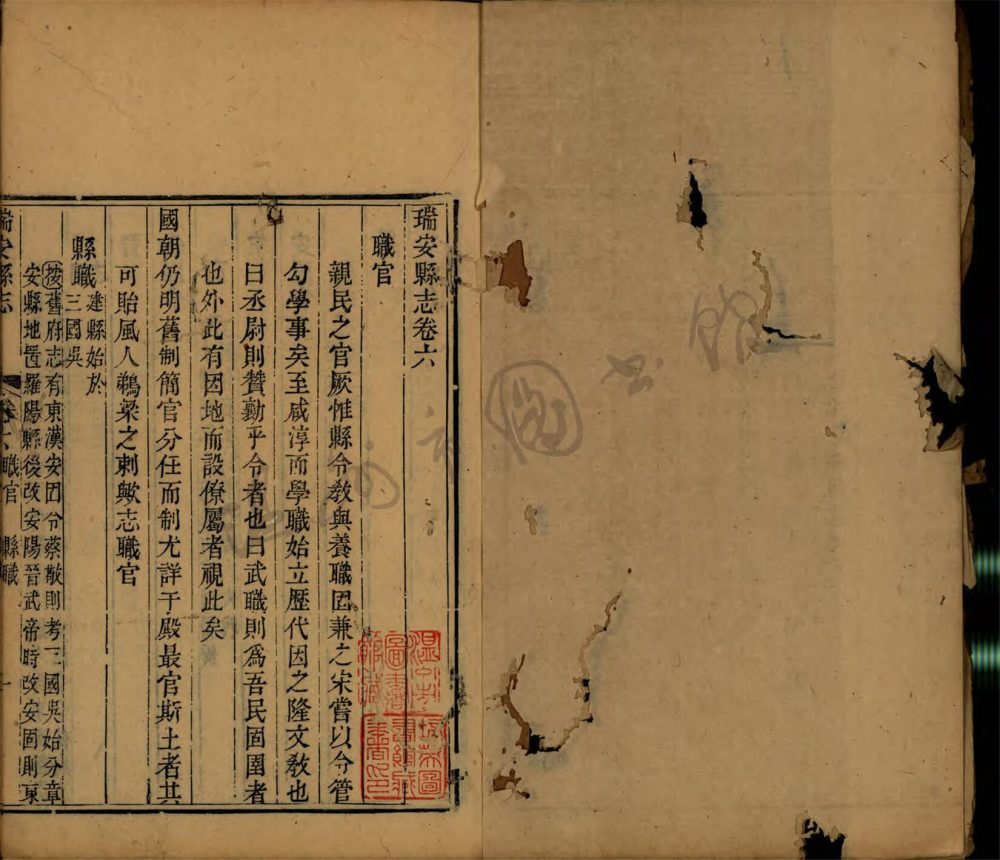 瑞安縣志卷六
職官
親民之官厥惟縣令教與養職固兼之宋嘗以令管
勾學事矣至咸淳而學職始立歷代因之隆文教也
曰丞尉則贊勷乎令者也曰武職則為吾民固圉者
也外此有因地而設僚屬者視此矣
國朝仍明舊制簡官分任而制尤詳于殿最官斯土者其
可貽風人鵜梁之刺歟志職官
縣職建縣始於
三國吳
按舊府志有東漢安固令蔡敵則考三國吳始分章
安縣地置羅陽縣後改安陽晉武帝時改安固則東
瑞安縣志 卷六 職官 縣職 一